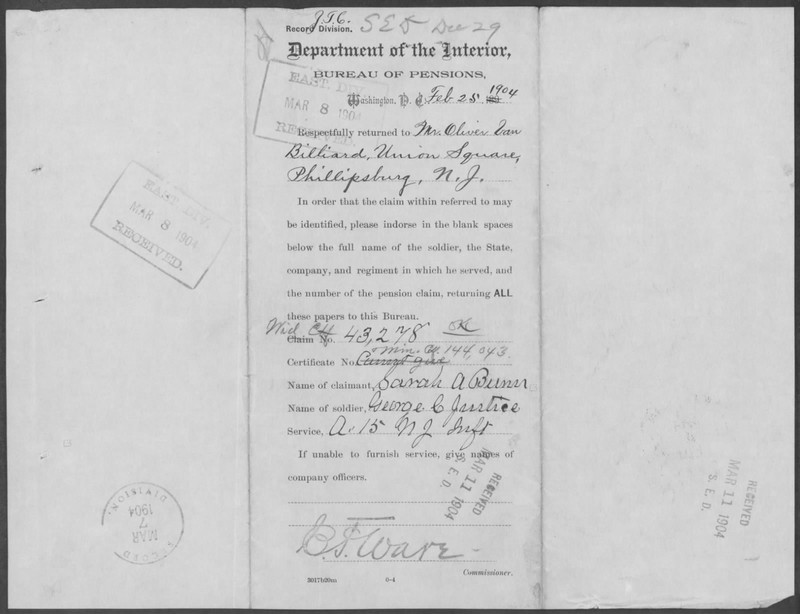 J.T.C.
Record Division. S E D Dec 29
Department of the Interior,
BUREAU OF PENSIONS,
Washington, D. C. Feb 25 1904
EAST. DIV.
MAR 8 1904
RECEIVED.
Respectfully returned to Mr. Oliver Van
Billiard, Union Square,
Phillipsburg, N. J.
In order that the claim within referred to may
be identified, please indorse in the blank spaces
below the full name of the soldier, the State,
company, and regiment in which he served, and
the number of the pension claim, returning ALL
these papers to this Bureau.
Wid Ctf
Claim No. 43,278 OK
Min. Ctf. 144,043.
Certificate No. Cannot give
Name of claimant, Sarah A Bunn
Name of soldier, George C Justice
Service, A. 15 N J Inft
If unable to furnish service, give names of
company officers.
RECEIVED
MAR 11 1904
S. E. D.
Commissioner.
3017b20m 6-4
EAST. DIV.
MAR 8 1904
RECEIVED.
RECORD DIVISION.
MAR
7
1904
RECEIVED
MAR 11 1904
S. E. D.